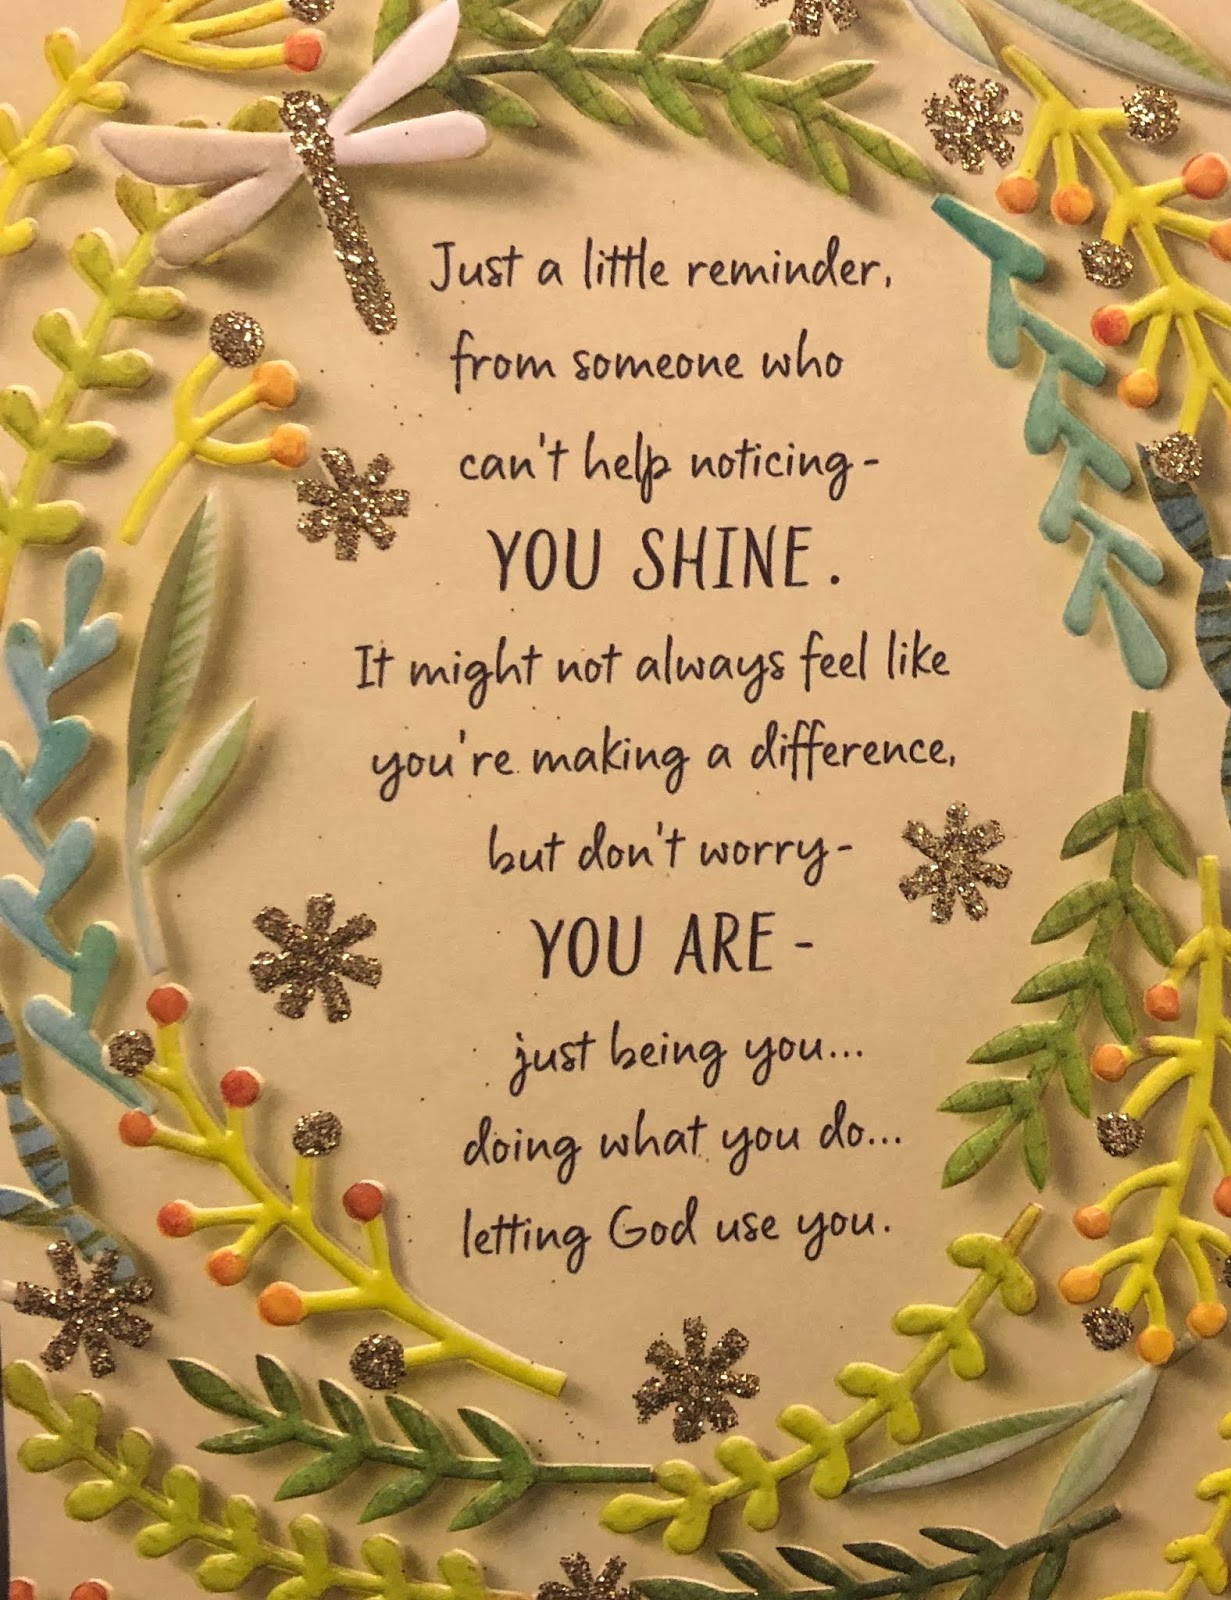 Just a little reminder,
from someone who
can't help noticing-
YOU SHINE.
It might not always feel like
you're making a difference,
but don't worry-
YOU ARE-
just being you...
doing what you do...
letting God use you.